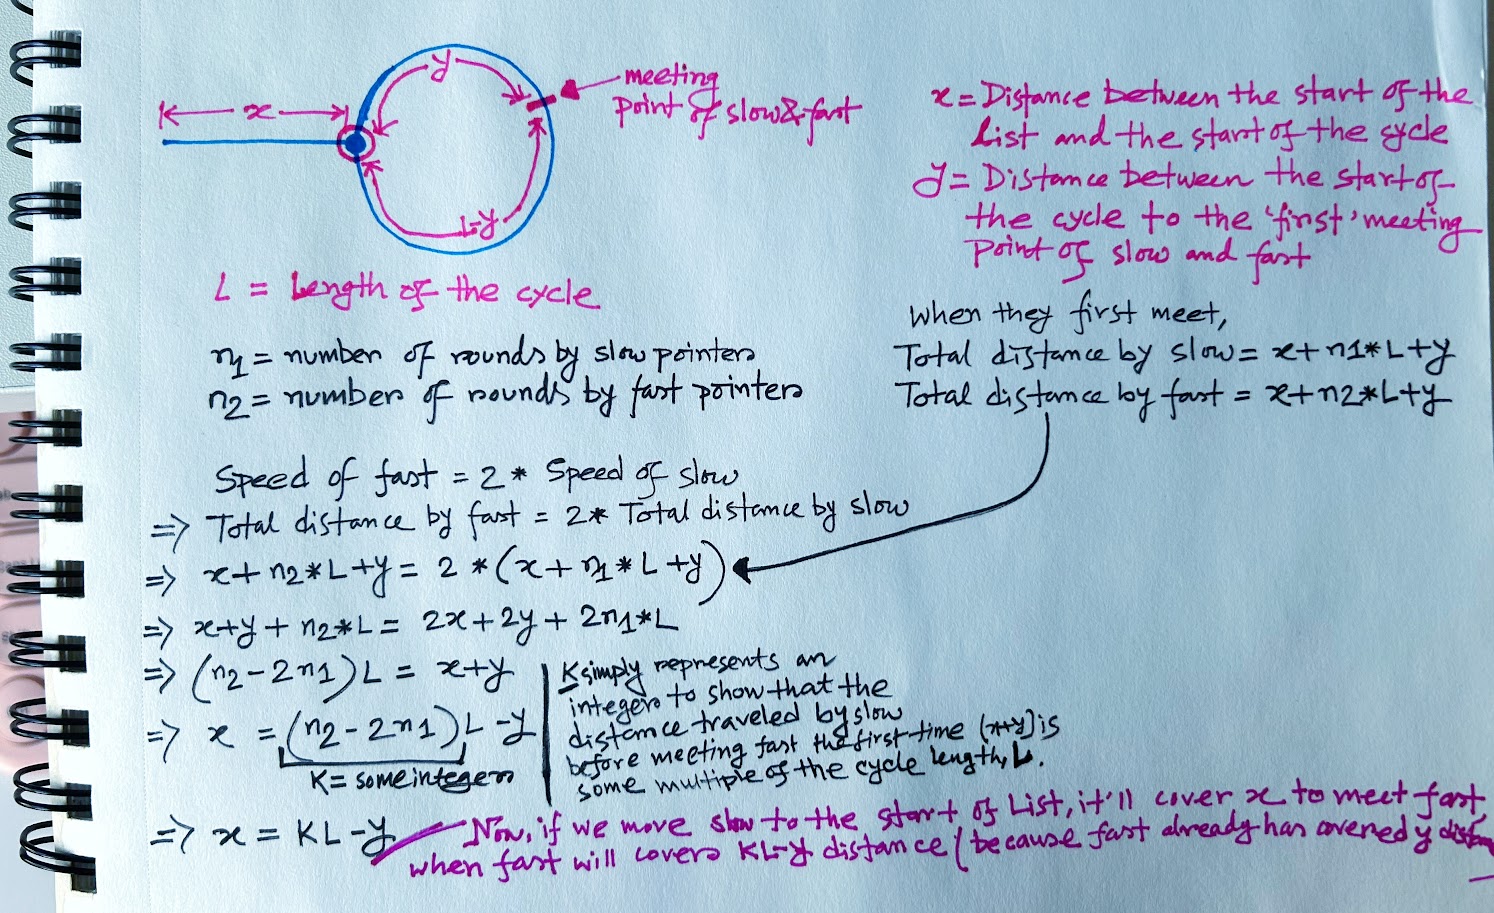 y
x
meeting
point of slow & fast
L-y
L = Length of the cycle
x = Distance between the start of the
List and the start of the cycle
y = Distance between the start of
the cycle to the 'first' meeting
Point of slow and fast
n1 = number of rounds by slow pointer
n2 = number of rounds by fast pointer
When they first meet,
Total distance by slow = x+n1*L+y
Total distance by fast = x+n2*L+y
Speed of fast = 2 * Speed of slow
=> Total distance by fast = 2* Total distance by slow
=> x+n2*L+y = 2*(x+n1*L+y)
=> x+y+n2*L = 2x+2y+2n1*L
=> (n2-2n1)L = x+y
=> x = (n2-2n1)L-y
K = some integer
K simply represents an
integer to show that the
distance traveled by slow
before meeting fast the first time (x+y) is
some multiple of the cycle length, L.
=> x = KL-y
Now, if we move slow to the start of List, it'll cover x to meet fast
when fast will cover KL-y distance (because fast already has covered y